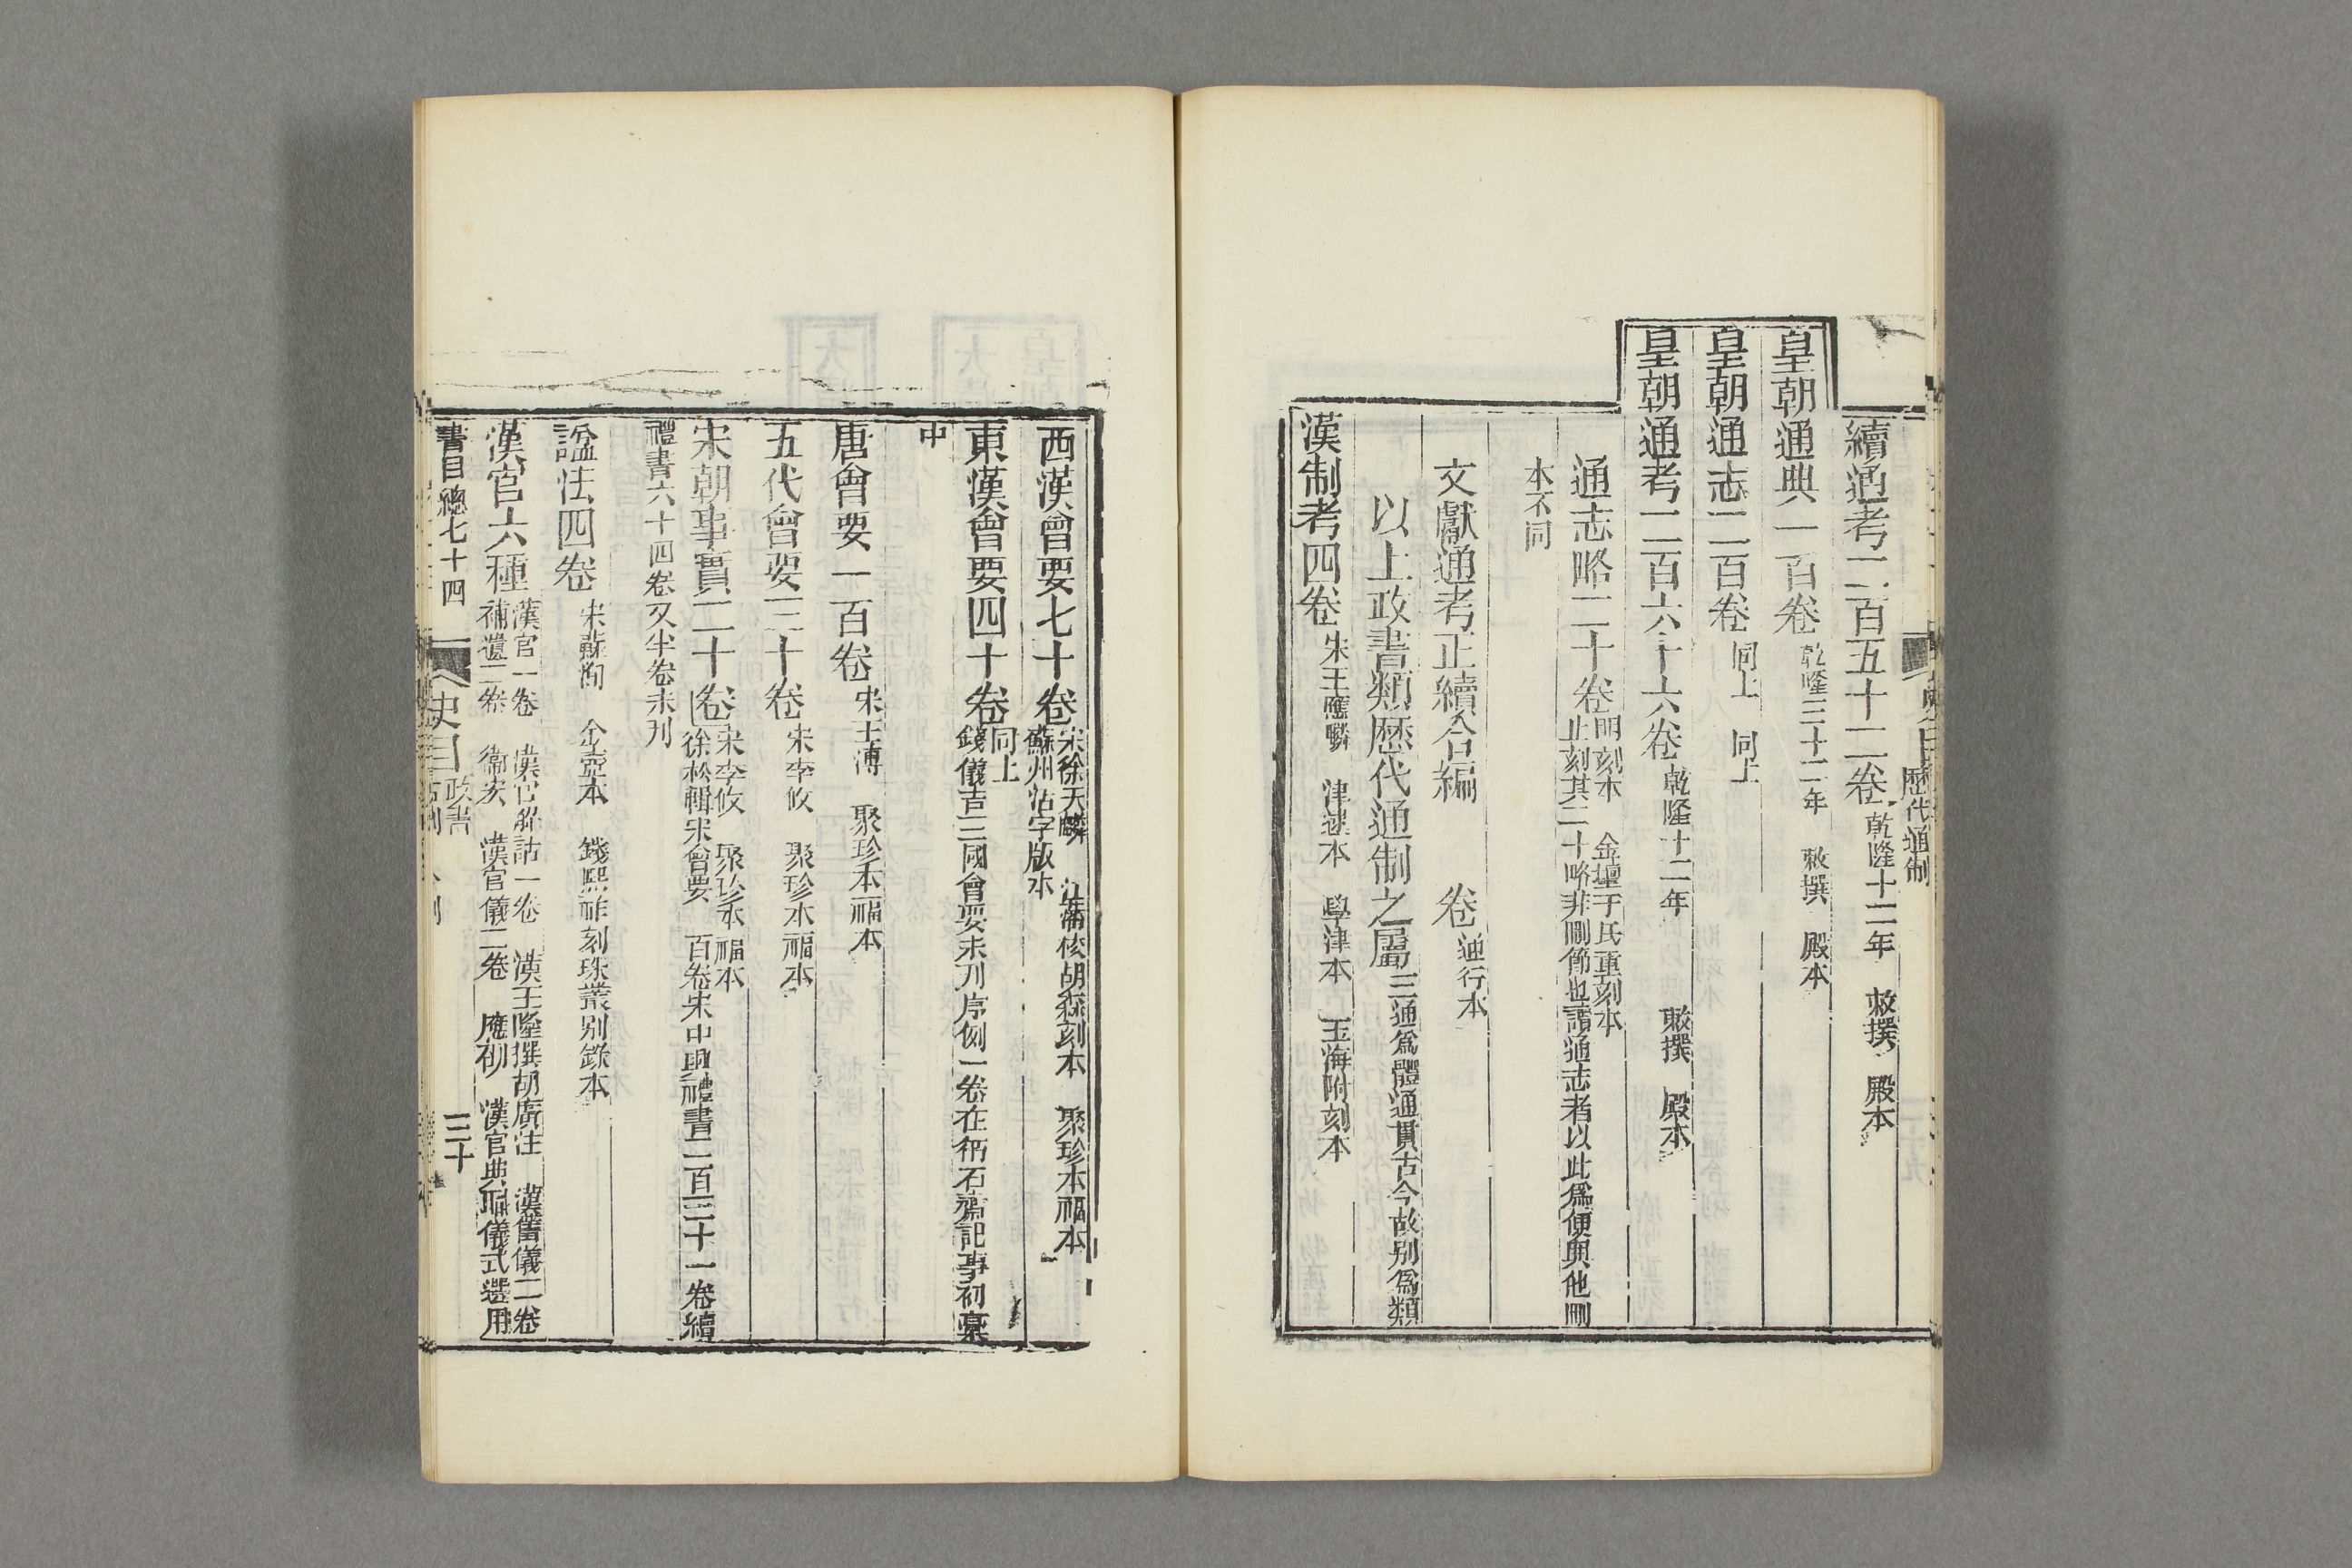 史目 歷代通制
續通考二百五十二卷 乾隆十二年 敕撰 殿本
皇朝通典一百卷 乾隆三十二年 敕撰 殿本
皇朝通志二百卷 同上 同上
皇朝通考二百六十六卷 乾隆十二年 敕撰 殿本
通志略二十卷 明刻本 金壇于氏重刻本
止刻其二十略非刪節也讀通志者以此爲便與他刪
本不同
文獻通考正續合編 卷 通行本
以上政書類歷代通制之屬 三通爲體通貫古今故別爲類
漢制考四卷 宋王應麟 津逮本 學津本 玉海附刻本
西漢會要七十卷 宋徐天麟 江蒲棱胡森刻本 聚珍本福本
蘇州活字版本
東漢會要四十卷 同上
錢儀吉三國會要未刋序例一卷在衎石齋記事初稾
中
唐會要一百卷 宋王溥 聚珍本福本
五代會要三十卷 宋李攸 聚珍本福本
宋朝事實二十卷 宋李攸 聚珍本福本
徐松輯宋會要 百卷宋中興禮書二百三十一卷續
禮書六十四卷又半卷未刋
諡法四卷 宋蘇洵 金壺本 錢熙祚刻珠叢别錄本
漢官六種 漢官一卷 漢官解詁一卷 漢王隆撰胡廣注 漢舊儀二卷
補遺二卷 衞宏 漢官儀二卷 應劭 漢官典職儀式選用
書目總七十四 史目 政書 三十